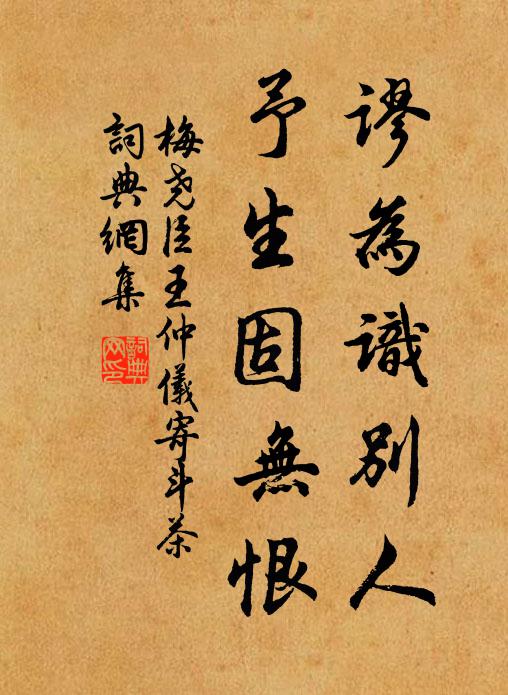 謬為識別人
予生固無恨
梅尧臣王仲儀寄斗茶
詞典網集
詞典網印